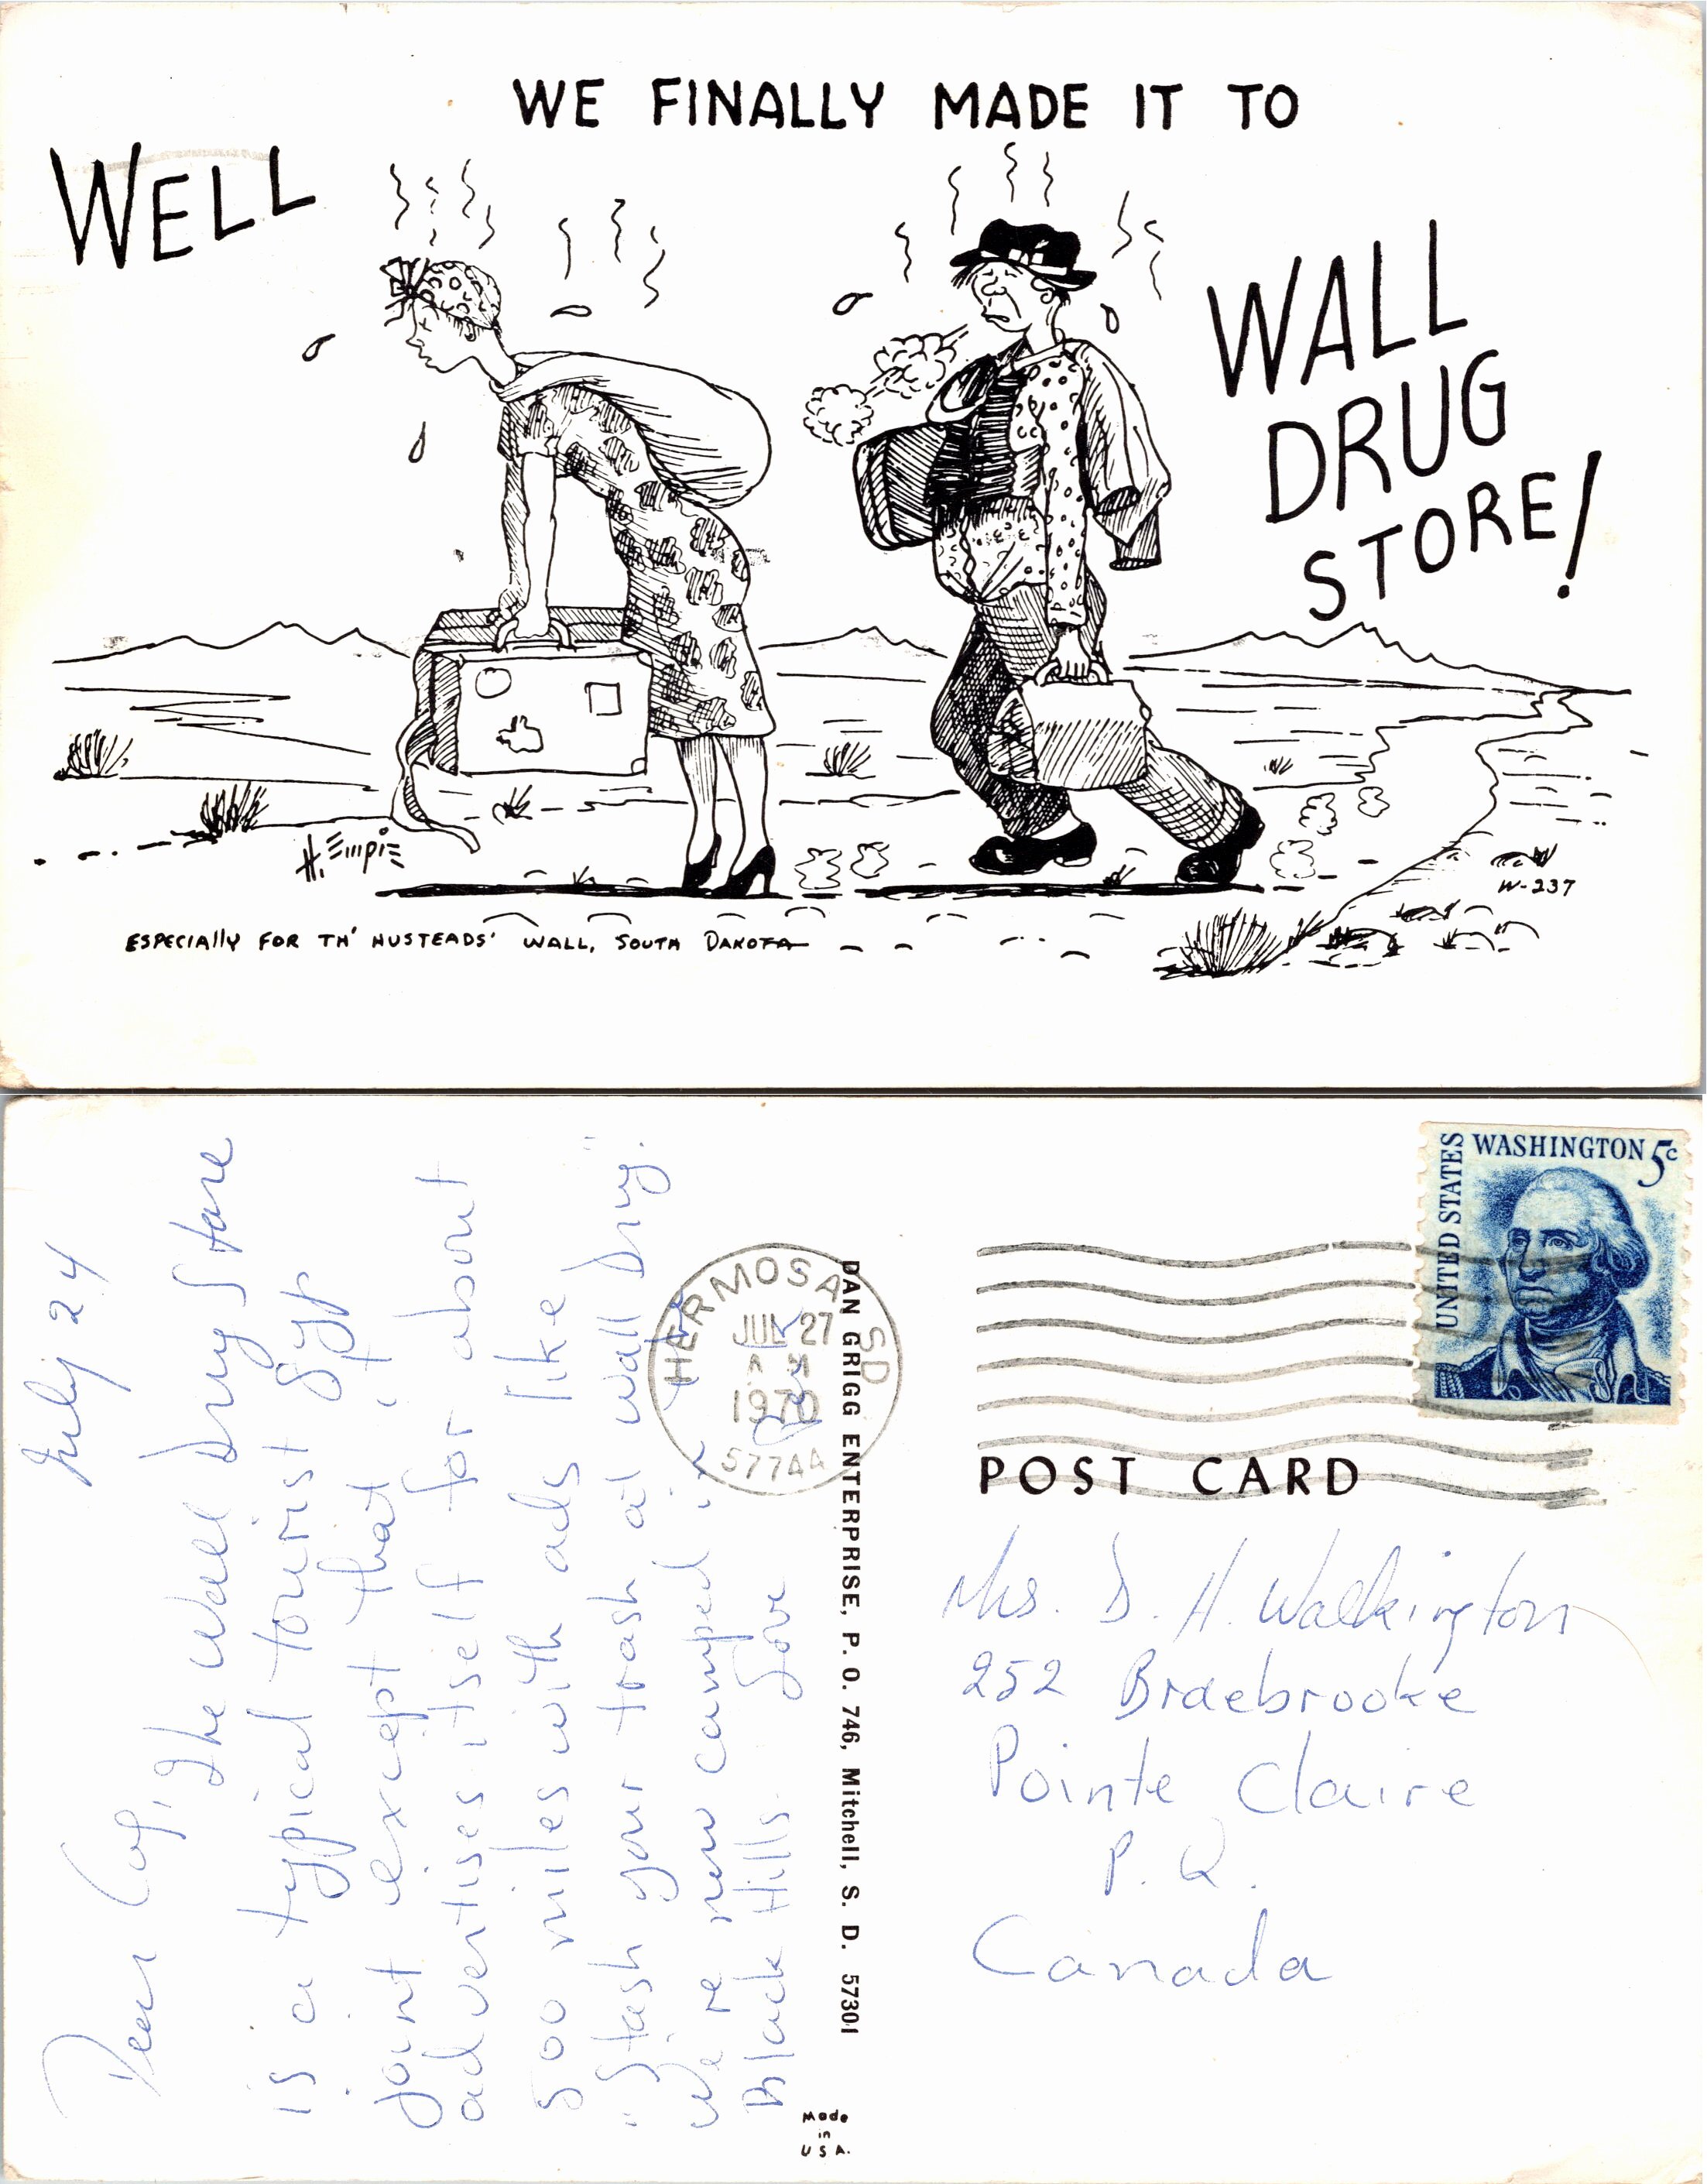 WE FINALLY MADE IT TO
WELL
WALL
DRUG
STORE!
H. Empie
W-237
ESPECIALLY FOR TH' HUSTEADS' WALL, SOUTH DAKOTA
July 24
Dear
The Wall Drug Store
is a typical tourist gyp
joint except that it
advertises itself for about
500 miles with ads like
"Stash your trash at Wall Drug".
We're now camped in the
Black Hills. Love
HERMOSA SD
JUL 27
AM
1970
57744
DAN GRIGG ENTERPRISE, P. O. 746, Mitchell, S. D. 57301
Made
in
USA.
UNITED STATES
WASHINGTON 5c
POST CARD
Mrs. D. H. Walkington
252 Braebrooke
Pointe Claire
P. Q.
Canada